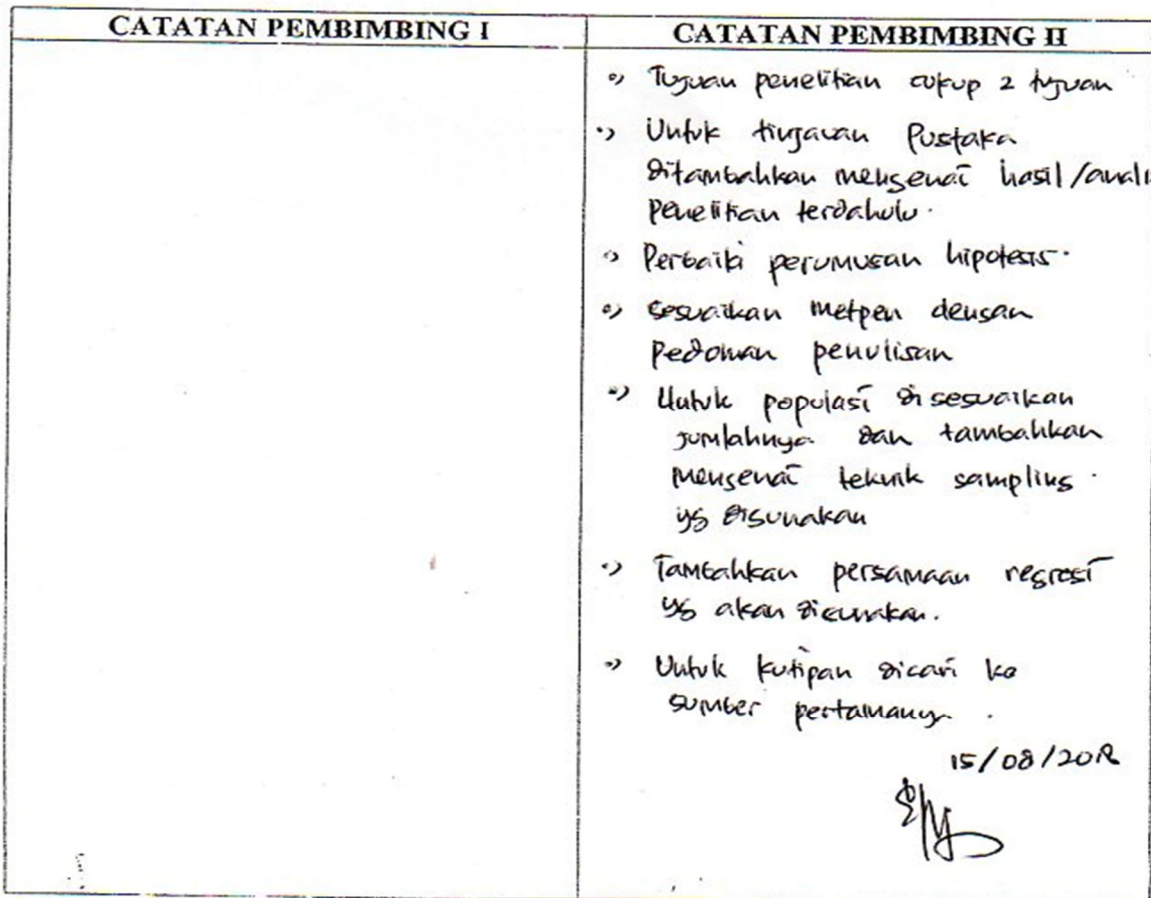 CATATAN PEMBIMBING I
CATATAN PEMBIMBING II
°) Tujuan penelitian cukup 2 tujuan
°) Untuk tinjauan Pustaka
ditambahkan mengenai hasil/anali
penelitian terdahulu.
°) Perbaiki perumusan hipotesis.
°) Sesuaikan metpen dengan
pedoman penulisan
°) Untuk populasi disesuaikan
jumlahnya dan tambahkan
mengenai teknik sampling
yg digunakan
°) Tambahkan persamaan regresi
yg akan digunakan.
°) Untuk kutipan dicari ke
sumber pertamanya.
15/08/2018